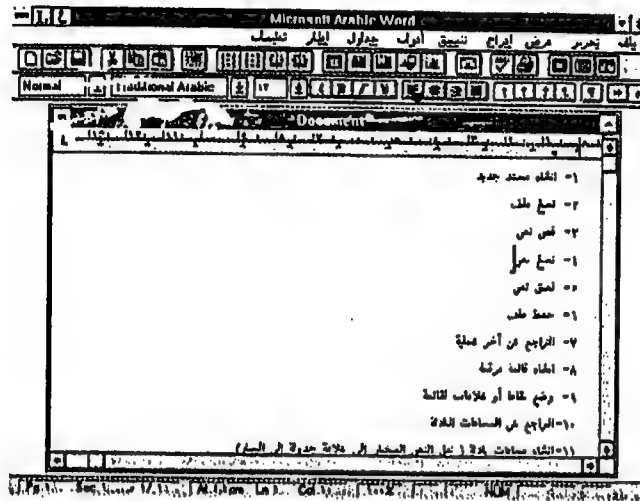 Microsoft Arabic Word
ملف تحرير عرض إدراج تنسيق أدوات جداول إطار تعليمات
Normal Traditional Arabic ١٢
Document
١- انشاء مستند جديد
٢- نسخ ملف
٣- قص نص
٤- نسخ نص
٥- لصق نص
٦- حفظ ملف
٧- التراجع عن آخر عملية
٨- انشاء قائمة مرقمة
٩- وضع نقاط أو علامات لقائمة
١٠-التراجع عن المسافات البادئة
١١-انشاء مسافات بادئة ( نقل النص المختار إلى علامة جدولة إلى اليسار)
Sec Ln Col NUM